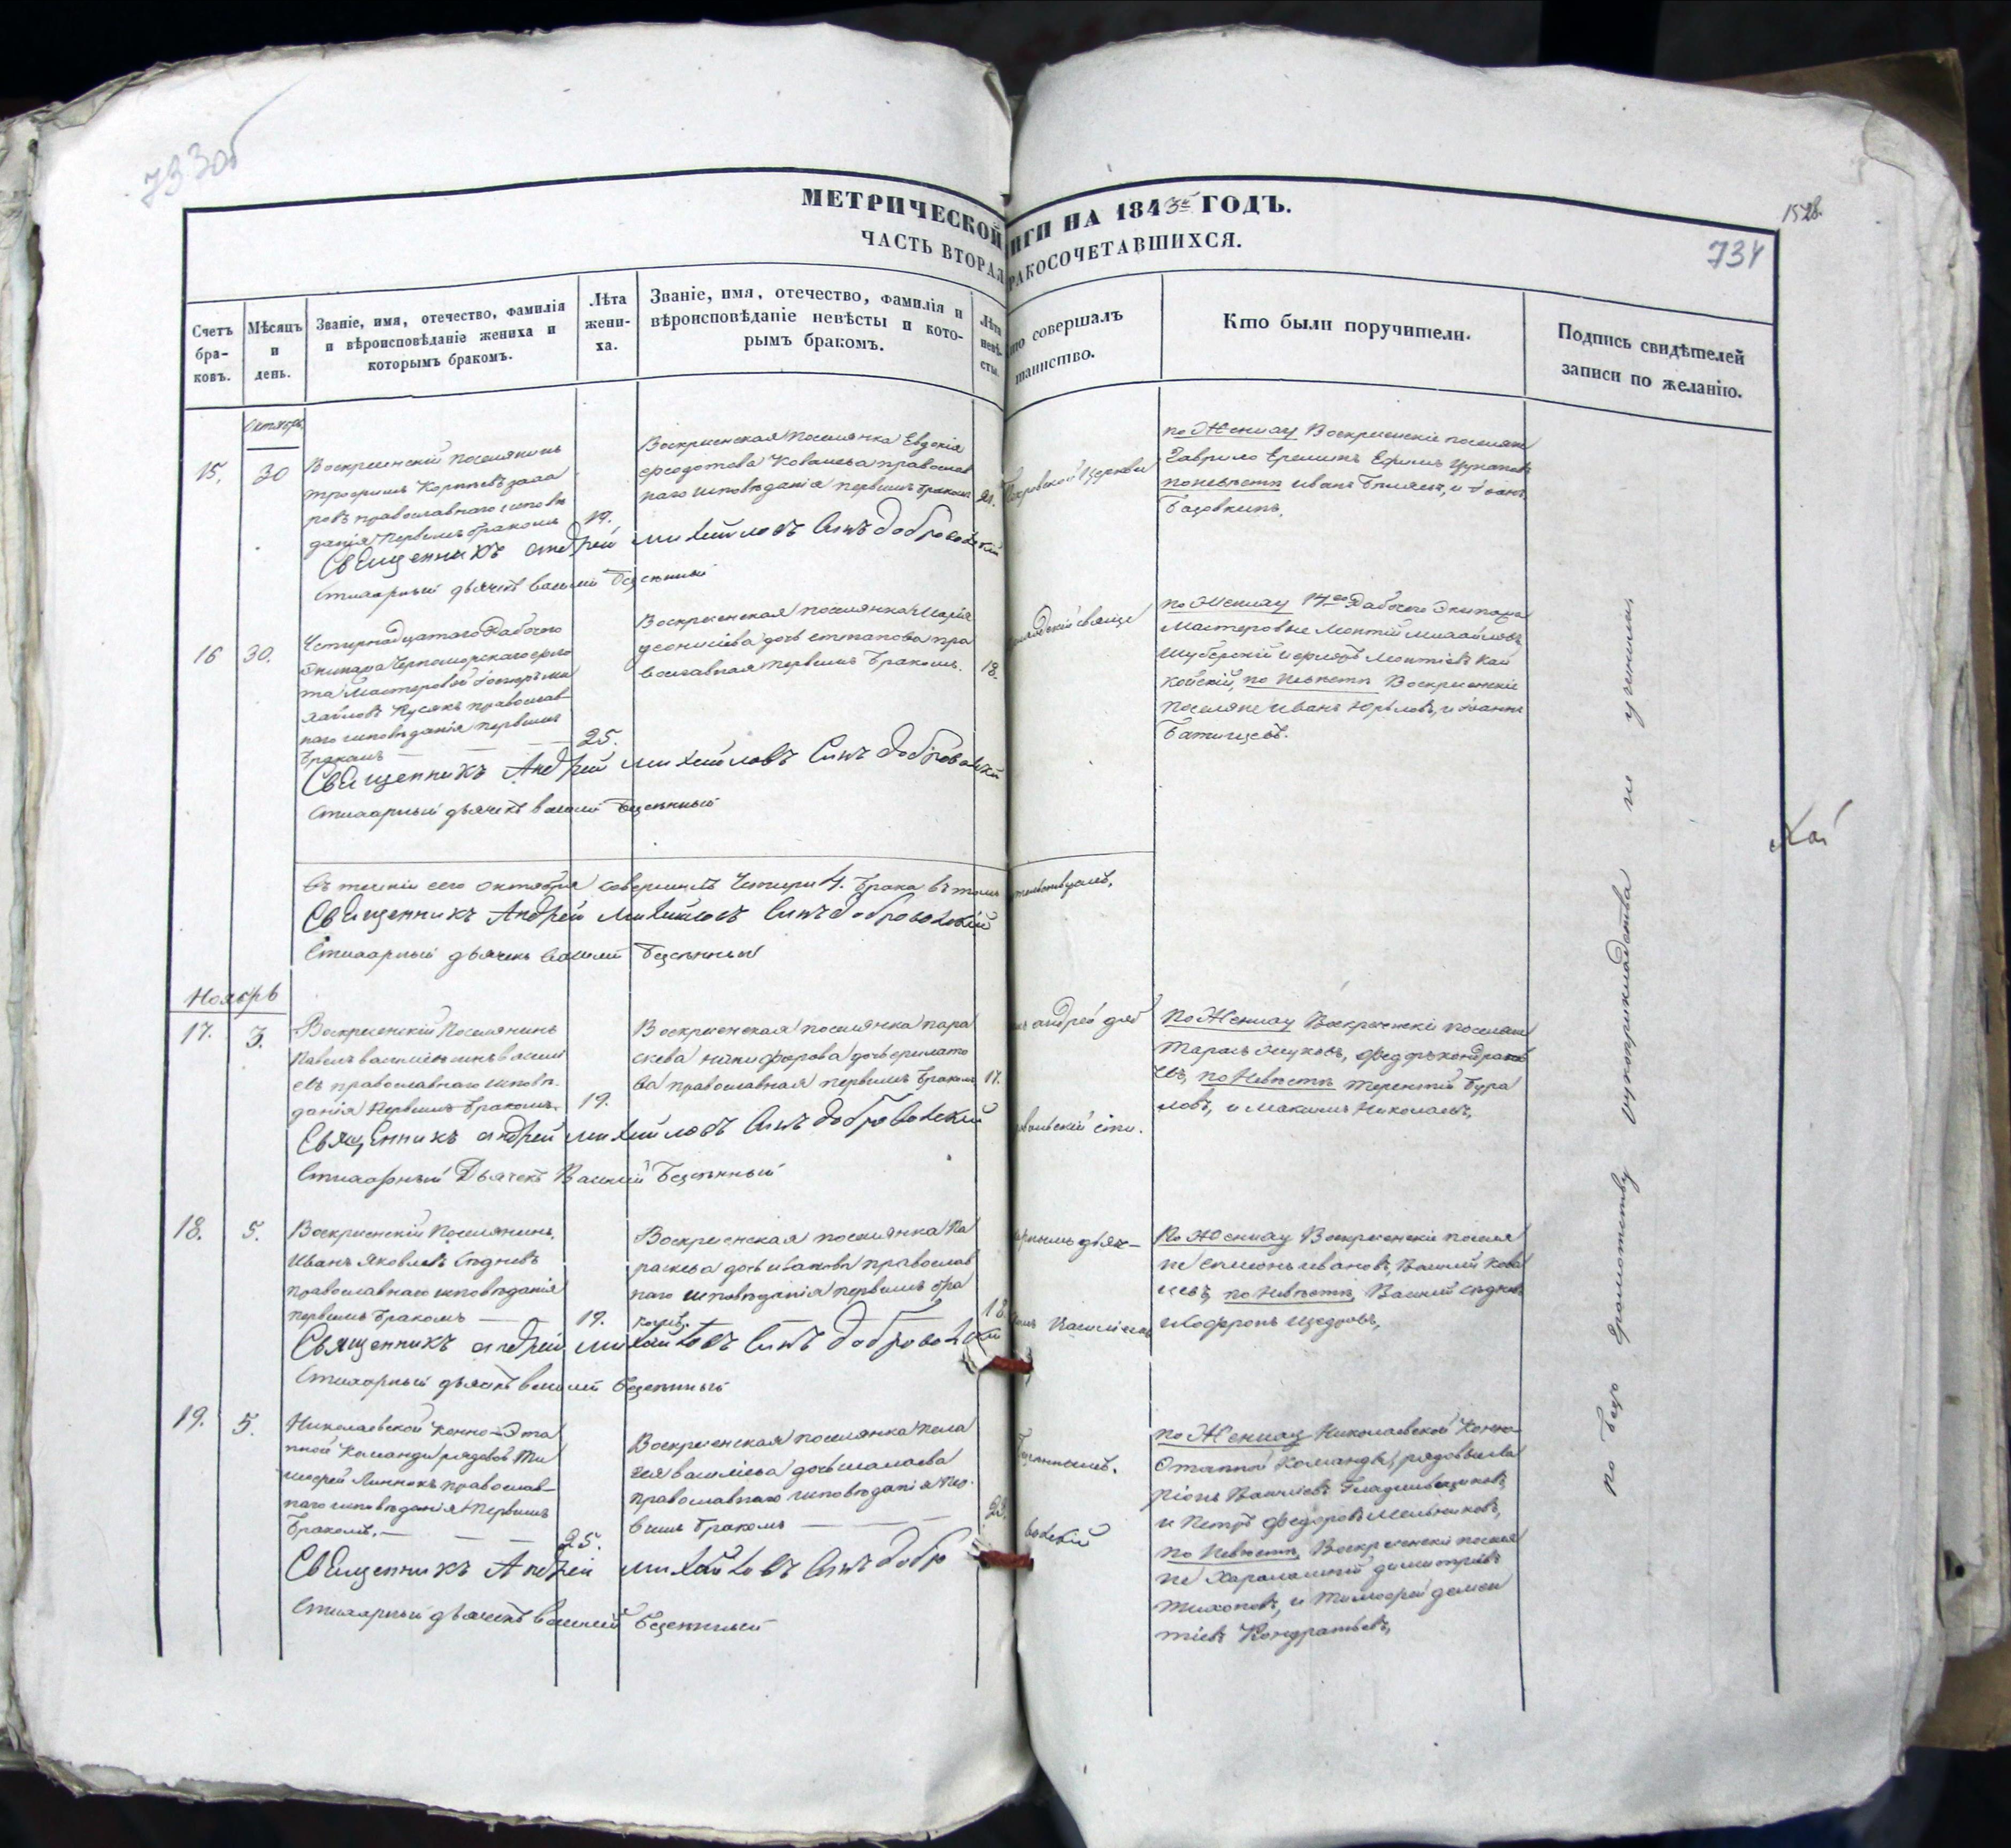 733об
1528.
734
МЕТРИЧЕСКОЙ
НИГИ НА 1843й ГОДЪ.
ЧАСТЬ ВТОРАЯ
РАКОСОЧЕТАВШИХСЯ.
Счетъ бра-ковъ.
Мѣсяцъ и день.
Званіе, имя, отечество, фамилія и вѣроисповѣданіе жениха и которымъ бракомъ.
Лѣта жени-ха.
Званіе, имя, отечество, фамилія и вѣроисповѣданіе невѣсты и кото-рымъ бракомъ.
Лѣта невѣ-сты.
то совершалъ таинство.
Кто были поручители.
Подпись свидѣтелей записи по желанію.
Октябрь
15.
30
Воскресенскій поселянинъ
Трофимъ Корнѣевъ
ровъ православнаго исповѣ
данія первымъ бракомъ
19.
Воскресенская поселянка Евдокія
Федотова Ковалева православ
наго исповѣданія первымъ бракомъ
21.
Покровской Церкви
по Женихѣ Воскресенскіе поселяне
Гаврило Ереминъ Ефимъ
по невѣстѣ Иванъ
Священникъ Андрей Михайловъ Сынъ Добровольскій
Стихарный дьячекъ Василій Безсѣнный
16
30.
Четырнадцатаго Рабочаго
Экипажа Черноморскаго фло
та Мастеровой
хайловъ Кусякъ православ
наго исповѣданія первымъ
бракомъ
25.
Воскресенская поселянка Марія
Деонисіева дочь Степанова пра
вославная первымъ бракомъ.
18.
по Женихѣ 14го Рабочаго Экипажа
Мастеровые Леонтій Михайловъ
Шуберскій и Леонтіевъ Кай
койскій, по невѣстѣ Воскресенскіе
поселяне Иванъ Юрьловъ, и Іоаннъ
Батищевъ.
Священникъ Андрей Михайловъ Сынъ Добровольскій
Стихарный дьячекъ Василій Безсѣнный
Въ теченіи сего октября совершилъ четыре 4. брака въ томъ
свидѣтельствуемъ,
Священникъ Андрей Михайловъ Сынъ Добровольскій
Стихарный дьячекъ Василій Безсѣнный
Ноябрь
17.
3.
Воскресенскій Поселянинъ
Павелъ Василіевъ сынъ Васили
евъ православнаго исповѣ
данія первымъ бракомъ.
19.
Воскресенская поселянка Пара
скева Никифорова дочь Филато
ва православная первымъ бракомъ
17.
андрей
По Женихѣ Воскресенскіе поселяне
Тарасъ Жуковъ, Федоръ Кондрать
евъ, по Невѣстѣ Терентій Бура
ловъ, и Максимъ Николаевъ,
Священникъ Андрей Михайловъ Сынъ Добровольскій
Стихарный Дьячекъ Василій Безсѣнный
18.
5.
Воскресенскій Поселянинъ
Иванъ Яковлевъ Сѣдневъ
православнаго исповѣданія
первымъ бракомъ
19.
Воскресенская поселянка Па
раскева дочь Иванова православ
наго исповѣданія первымъ бра
комъ.
18.
По Женихѣ Воскресенскіе поселя
не Симеонъ Ивановъ, Василій Кова
левъ, по Невѣстѣ, Василій Сѣдневъ
и Софронъ Щедровъ,
Священникъ Андрей Михайловъ Сынъ Добровольскій
Стихарный дьячекъ Василій Безсѣнный
19.
5.
Николаевской Конно-Эта
пной Команды рядовой Ти
мофей Линникъ православ-
наго исповѣданія первымъ
бракомъ,
25.
Воскресенская поселянка Пела
гея Василіева дочь Малаева
православнаго исповѣданія пер
вымъ бракомъ
23.
Безсѣннымъ.
по Женихѣ Николаевской Конно-
Этапной Команды, рядовые Ила
ріонъ Василіевъ Гладишевщиковъ
и Петръ Федоровъ Мельниковъ,
по Невѣстѣ, Воскресенскіе поселя
не Харалампій Димитріевъ
Тихоновъ, и Тимофей Демен
тіевъ Кондратьевъ,
Священникъ Андрей Михайловъ Сынъ Добро
вольскій
Стихарный дьячекъ Василій Безсѣнный
по безъ Грамотству рукоприкладства не учинили